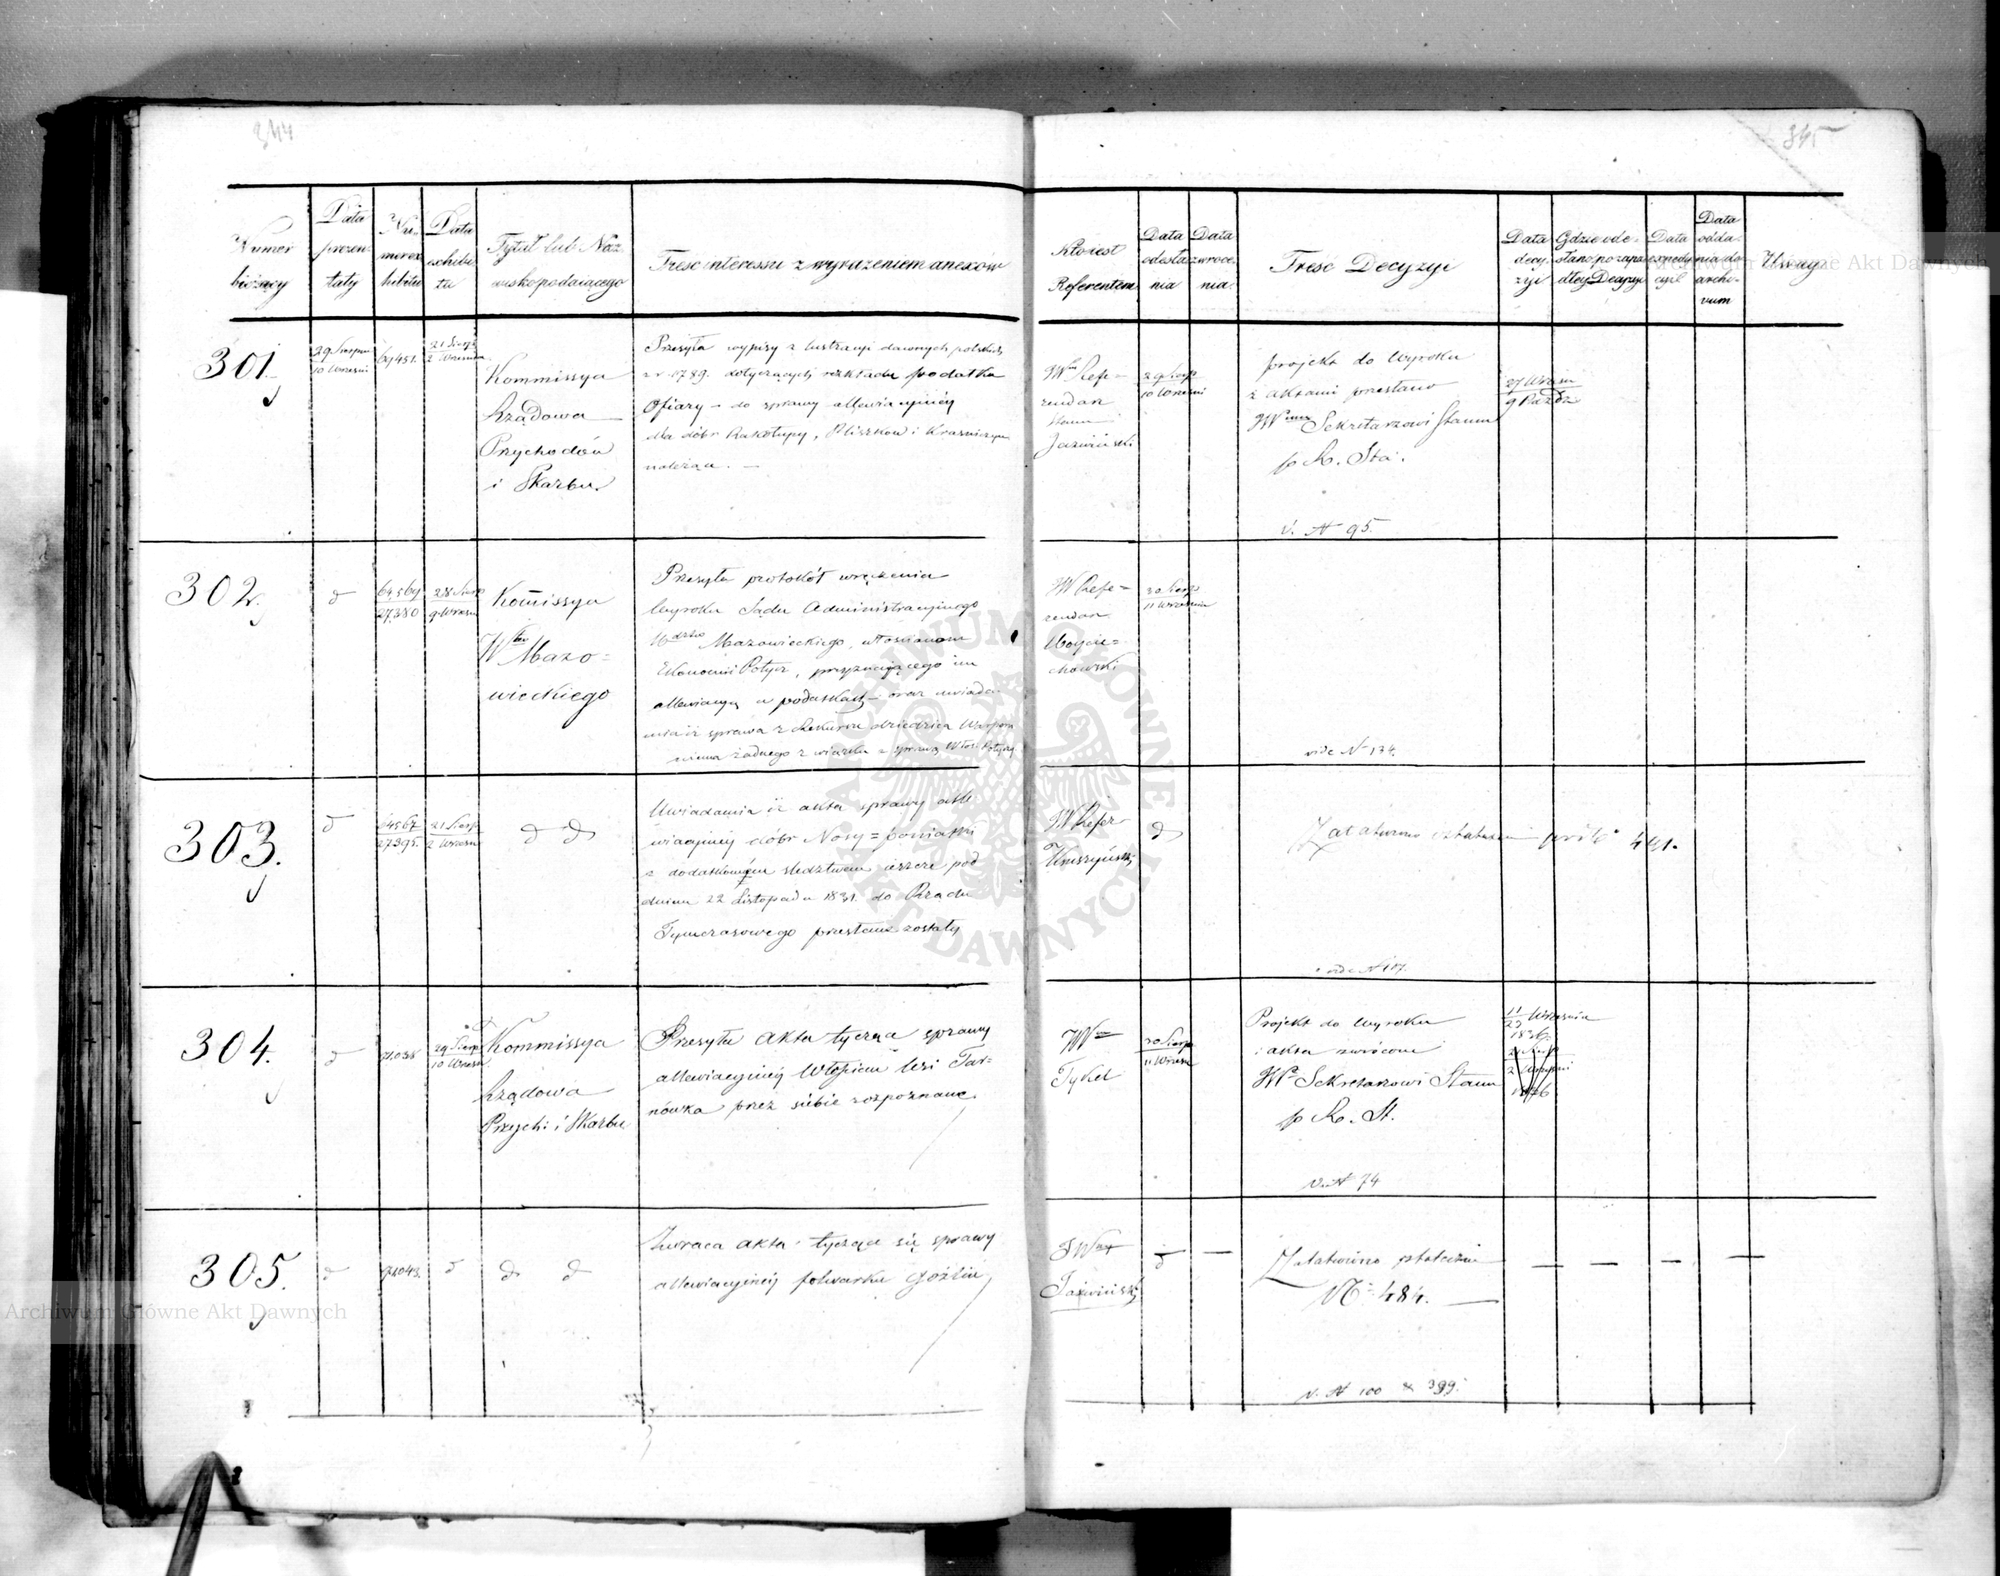 344
345
Numer bieżący
Data prezentaty
Numer exhibitu
Data exhibitu
Tytuł lub Nazwisko podaiącego
Treść interessu z wyrażeniem anexów
Kto iest Referentem
Data odesłania
Data zwrócenia
Treść Decyzyi
Data decyzyi
Gdzie odesłano po zapadłey Decyzyi
Data expedycyi
Data oddania do archivum
Uwagi
301.
29 Sierpnia
10 Wrześni
69451.
21 Sierp
2 Września
Kommissya
Rządowa
Przychodów
i Skarbu.
Przesyła wypisy z lustracyi dawnych polskich
z r. 1789. dotyczących rozkładu podatku
Ofiary – do sprawy allewiacyjnéy
dla dóbr Rakołupy, Pliszków i Kraśniczyn
należąca. —
JWny Refe=
rendarz
Stanu
Jaźwiński
29 Sierp
10 Wrześni
projekt do Wyroku
z aktami przesłano
JWmu Sekretarzowi Stanu
p R. Sta.
27 Wrześn
9 Paźdz
v. N 95.
302.
d
27,380
28 Sierp
9 Wrześn
Komissya
Wtwa Mazo=
wieckiego
Przesyła protokół wręczenia
Wyroku Sądu Administracyjnego
Wdztwa Mazowieckiego, włościanom
Ekonomii Potycz, przyznaiącego im
allewiacyą w podatkach – oraz uwiada
mia iż sprawa z Rekursu dziedzica
niema żadnego z wiązku z sprawą Włoś. Potyczy
JW Refe=
rendarz
Woycie=
chowski
30 Sierp
11 Września
vide N 174.
303.
d
64567
27395.
21 Sierp
2 Wrześn
d d
Uwiadamia iż akta sprawy alle
wiacyjnéy dóbr Nosy=poniatki
z dodatkowym śledztwem ieszcze pod
dniem 22 Listopada 1831. do Rządu
Tymczasowego przesłane zostały
JW Refer
Kruszyński
d
Załatwiono ostatecznie pod 441.
vide N 107.
304.
d
29 Sierp
10 Wrześn
Kommissya
Rządowa
Przych: i Skarbu
Przesyła akta tyczące sprawy
allewiacyjnéy Włościan wsi Tar=
nówka przez siebie rozpoznane.
JWny
Tykel
30 Sierp
11 Wrześn
Projekt do Wyroku
i akta zwrócone
JWu Sekretarzowi Stanu
p R. St.
11 Września
23
1836
v. N 74
305.
d
71043.
d
d d
Zwraca akta tyczące się sprawy
allewiacyjnéy folwarku Goźlin
JWny
Jaźwiński
d
—
Załatwiono ostatecznie
N 484. —
— — — —
v. N 100 & 399.
Archiwum Główne Akt Dawnych
Archiwum Główne Akt Dawnych
ARCHIWUM GŁÓWNE AKT DAWNYCH